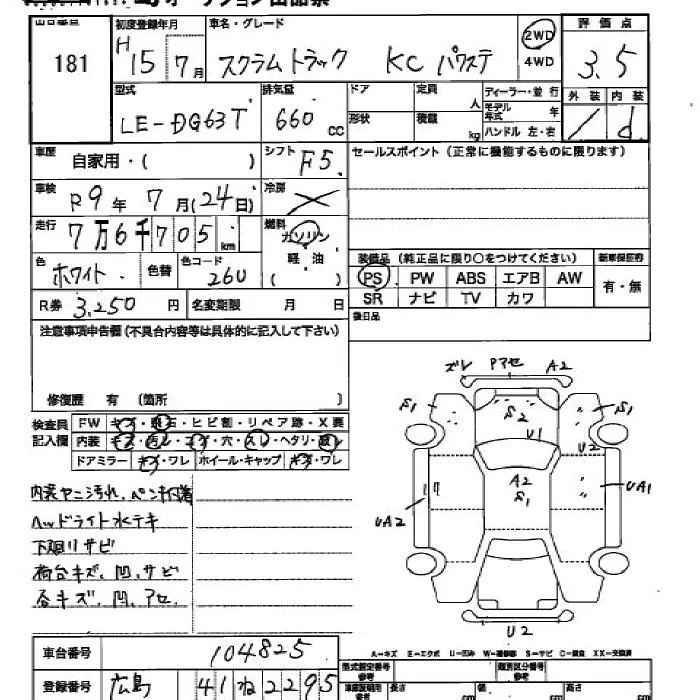 出品番号 初度登録年月 車名・グレード 評価点
181 H15年7月 スクラムトラック KC パワステ 2WD 4WD 3.5
型式 排気量 ドア 定員 人 ディーラー・並行 外装 内装
LE-DG63T 660 CC 形状 積載 kg モデル年式 年 ハンドル 左・右 / d
車歴 自家用・( ) シフト F5 セールスポイント(正常に機能するものに限ります)
車検 R9年 7月(24日) 冷房
走行 7万6千705km 燃料 ガソリン 軽油 ( )
色 ホワイト 色替 色コード 26U 装備品(純正品に限り○をつけてください) 新車保証書
PS PW ABS エアB AW 有・無
R券 3,250円 名変期限 月 日 SR ナビ TV カワ
注意事項申告欄(不具合内容等は具体的に記入して下さい) 後日品
修復歴 有 (箇所 )
検査員記入欄 FW キズ・飛石・ヒビ割・リペア跡・X要
内装 キズ・汚レ・コゲ・穴・スレ・ヘタリ・
ドアミラー キズ・ワレ ホイール・キャップ キズ・ワレ
内装ヤニ汚れ、ペンキ付着
ヘッドライト水テキ
下廻リサビ
荷台キズ、凹、サビ
各キズ、凹、アセ
ズレ Pアセ A2
S1 S2 S1
U1 U2
A2 S1
UA2 UA1
U2
A-キズ E-エクボ U-凹み W-補修跡 S-サビ C-腐食 XX-交換済
車台番号 104825
登録番号 広島 41 ね 2295
型式指定番号 参考 類別区分番号 参考
車庫証明用 参考 長さ cm 幅 cm 高さ cm